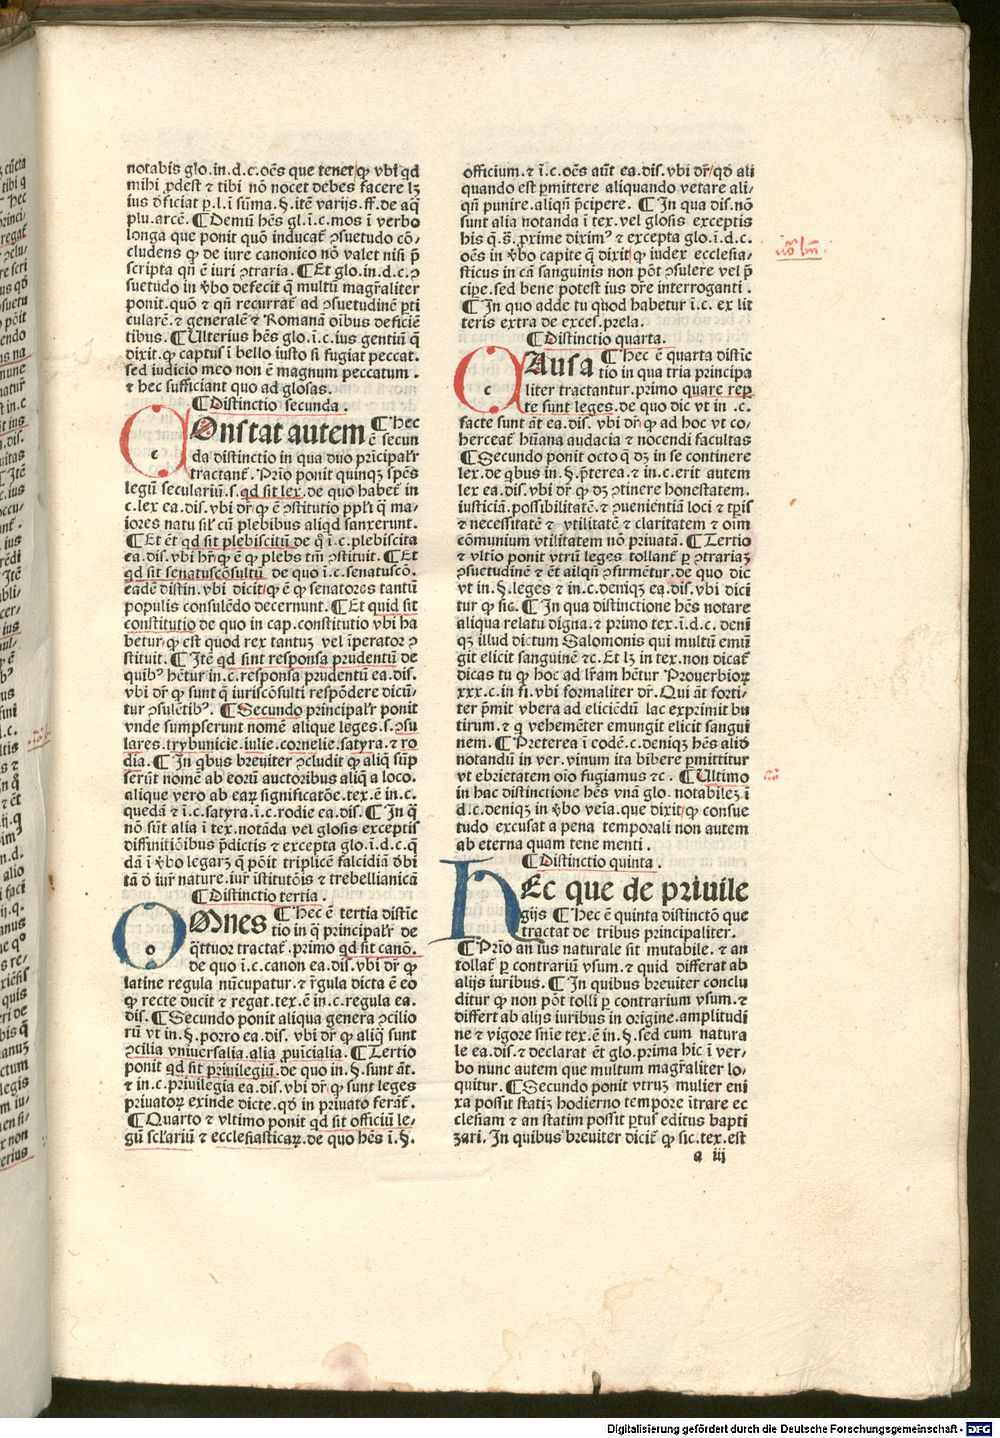 notabis glo.in.d.c.oēs que tenet ꝙ vbi qd
mihi ꝓdest ⁊ tibi nō nocet debes facere lꝫ
ius dꝰficiat ꝑ.l.ī sūma.§.itē varijs.ff.de aq̄
plu.arcē. ¶ Demū hēs gl.ī.c.mos ī verbo
longa que ponit quō inducat̄ ꝯsuetudo cō-
cludens ꝙ de iure canonico nō valet nisi p̄
scripta qn̄ ē iuri ꝯtraria. ¶ Et glo.in.d.c.ꝯ
suetudo in v̄bo defecit q̄ multū magr̄aliter
ponit.quō ⁊ qn̄ recurrat̄ ad ꝯsuetudinē ꝑti
cularē.⁊ generalē ⁊ Romanā oībus deficiē
tibus. ¶ Ulterius hēs glo.ī.c.ius gentiū q̄
dixit.ꝙ captus ī bello iusto si fugiat peccat.
sed iudicio meo non ē magnum peccatum.
⁊ hec sufficiant quo ad glosas.
¶ Distinctio secunda.
COnstat autem ¶ Hec
ē secun
da distinctio in qua duo pr̄icipalr̄
tractant̄. Prīo ponit quinqꝫ spēs
legū seculariū.s.qd sit lex.de quo habet̄ in
c.lex ea.dis.vbi dr̄ ꝙ ē ꝯstitutio ppl̄i q̄ ma-
iores natu sil̄ cū plebibus aliqd sanxerunt.
¶ Et ēt qd sit plebiscitū de q̄ ī.c.plebiscita
ea.dis.vbi hr̄ ꝙ ē ꝙ plebs tm̄ ꝯstituit. ¶ Et
qd sit senatuscōsultū de quo ī.c.senatuscō.
eadē distin.vbi dicit ꝙ ē ꝙ senatores tantū
populis consulēdo decernunt. ¶ Et quid sit
constitutio de quo in cap.constitutio vbi ha
betur ꝙ est quod rex tantuꝫ vel īperator ꝯ
stituit. ¶ Itē qd sint responsa prudentū de
quibꝰ hētur in.c.responsa prudentū ea.dis.
vbi dr̄ ꝙ sunt q̄ iuriscōsulti respōdere dicū-
tur ꝯsulētibꝰ. ¶ Secundo principalr̄ ponit
vnde sumpserunt nomē alique leges.s.ꝯsu
lares.trybunicie.iulie.cornelie.satyra.⁊ ro
dia. ¶ In q̄bus breuiter ꝯcludit ꝙ aliq̄ sūp
serūt nomē ab eorū auctoribus aliq̄ a loco.
alique vero ab eaꝝ significatōe.tex.ē in.c.
quedā ⁊ ī.c.satyra.ī.c.rodie ea.dis. ¶ In q̄
nō sūt alia ī tex.notāda vel glosis exceptis
diffinitiōibus p̄dictis ⁊ excepta glo.ī.d.c.q
dā ī v̄bo legarꝫ q̄ pōit triplicē falcidiā dꝰbi
tā dꝰ iur̄ nature.iur̄ īstitutōis ⁊ trebellianicā
¶ Distictio tertia.
OMnes ¶ Hec ē tertia distīc
tio in q̄ principalr̄ de
q̄ttuor tractat̄.primo qd sit canō.
de quo ī.c.canon ea.dis.vbi dr̄ ꝙ
latine regula nūcupatur.⁊ r̄gula dicta ē eo
ꝙ recte ducit ⁊ regat.tex.ē in.c.regula ea.
dis. ¶ Secundo ponit aliqua genera ꝯcilio
rū vt in.§.porro ea.dis. vbi dr̄ ꝙ aliq̄ sunt
ꝯcilia vniuersalia.alia ꝓuīcialia. ¶ Tertio
ponit qd sit priuilegiū.de quo in.§.sunt āt.
⁊ in.c.priuilegia ea.dis.vbi dr̄ ꝙ sunt leges
priuatoꝝ exinde dicte.qd in priuato ferāt̄.
¶ Quarto ⁊ vltimo ponit qd sit officiū le-
gū scl̄ariū ⁊ ecclesiasticaꝝ.de quo hēs ī.§.
officium.⁊ ī.c.oēs aūt ea.dis.vbi dr̄ qd ali
quando est ꝑmittere aliquando vetare ali-
qn̄ punire.aliqn̄ p̄cipere. ¶ In qua dis.nō
sunt alia notanda ī tex.vel glosis exceptis
his q̄.s̄.ꝓxime diximꝰ ⁊ excepta glo.ī.d.c.
oēs in v̄bo capite q̄ dixit ꝙ iudex ecclesia-
sticus in cā sanguinis non pōt ꝯsulere vel p̄
cipe.sed bene potest ius dr̄e interroganti.
¶ In quo adde tu quod habetur ī.c. ex lit
teris extra de exces.prela.
¶ Distinctio quarta.
CAusa ¶ Hec ē quarta distīc
tio in qua tria principa
liter tractantur.primo quare reper
te sunt leges.de quo dic vt in .c.
facte sunt āt ea.dis.vbi dr̄ ꝙ ad hoc vt co-
herceat̄ hūana audacia ⁊ nocendi facultas
¶ Secundo ponit octo q̄ dꝫ in se continere
lex.de q̄bus in.§.p̄terea.⁊ in.c.erit autem
lex ea.dis.vbi dr̄ ꝙ dꝫ ꝯtinere honestatem.
iusticiā.possibilitatē.ꝯueniētiā loci ⁊ tꝑis
⁊ necessitatē ⁊ vtilitatē ⁊ claritatem ⁊ oim
cōmunium vtilitatem nō priuatā. ¶ Tertio
⁊ vltīo ponit vtrū leges tollant̄ ꝑ ꝯtrariaꝫ
ꝯsuetudinē ⁊ ēt aliqn̄ ꝯfirmētur.de quo dic
vt in.§.leges ⁊ in.c.deniqꝫ ea.dis.vbi dici
tur ꝙ sic. ¶ In qua distinctione hēs notare
aliqua relatu digna.⁊ primo tex.ī.d.c.deni
qꝫ illud dictum Salomonis qui multū emū
git elicit sanguinē ⁊c.Et lꝫ in tex.non dicat̄
dicas tu ꝙ hoc ad lr̄am hētur Prouerbioꝝ
xxx.c.in fi.vbi formaliter dr̄.Qui āt forti-
ter p̄mit vbera ad eliciēdū lac exprimit bu
tirum.⁊ q̄ vehemēter emungit elicit sangui
nem. ¶ Preterea ī codē.c.deniqꝫ hēs aliō
notandū in ver.vinum ita bibere ꝑmittitur
vt ebrietatem oīo fugiamus ⁊c. ¶ Ultimo
in hac distinctione hēs vnā glo. notabileꝫ ī
d.c.deniqꝫ in v̄bo veīa.que dixit ꝙ consue
tudo excusat a pena temporali non autem
ab eterna quam tene menti.
¶ Distinctio quinta.
HEc que de priuile
gijs ¶ Hec ē quinta distinctō que
tractat de tribus principaliter.
¶ Prīo an ius naturale sit mutabile. ⁊ an
tollat̄ ꝑ contrariū vsum.⁊ quid differat ab
alijs iuribus. ¶ In quibus breuiter conclu
ditur ꝙ non pōt tolli ꝑ contrarium vsum.⁊
differt ab alijs iuribus in origine.amplitudi
ne ⁊ vigore sn̄ie tex.ē in.§.sed cum natura
le ea.dis.⁊ declarat ēt glo.prima hic ī ver-
bo nunc autem que multum magr̄aliter lo-
quitur. ¶ Secundo ponit vtruꝫ mulier eni
xa possit statiꝫ hodierno tempore ītrare ec
clesiam ⁊ an statim possit ptus̄ editus bapti
zari. In quibus breuiter dicit̄ ꝙ sic.tex.est
a iij
Digitalisierung gefördert durch die Deutsche Forschungsgemeinschaft - DFG